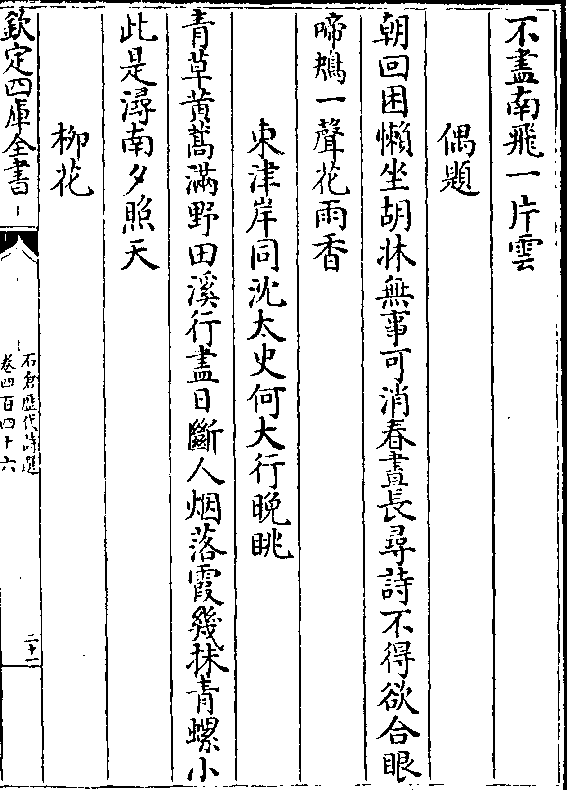 不盡南飛一片雲
偶題
朝回困懶坐胡牀無事可消春晝長尋詩不得欲合眼
啼鴂一聲花雨香
東津岸同沈太史何大行晚眺
青草黄蒿滿野田溪行盡日斷人烟落霞幾抹青螺小
此是潯南夕照天
柳花
欽定四庫全書
石倉歴代詩選
卷四百四十六
二十一